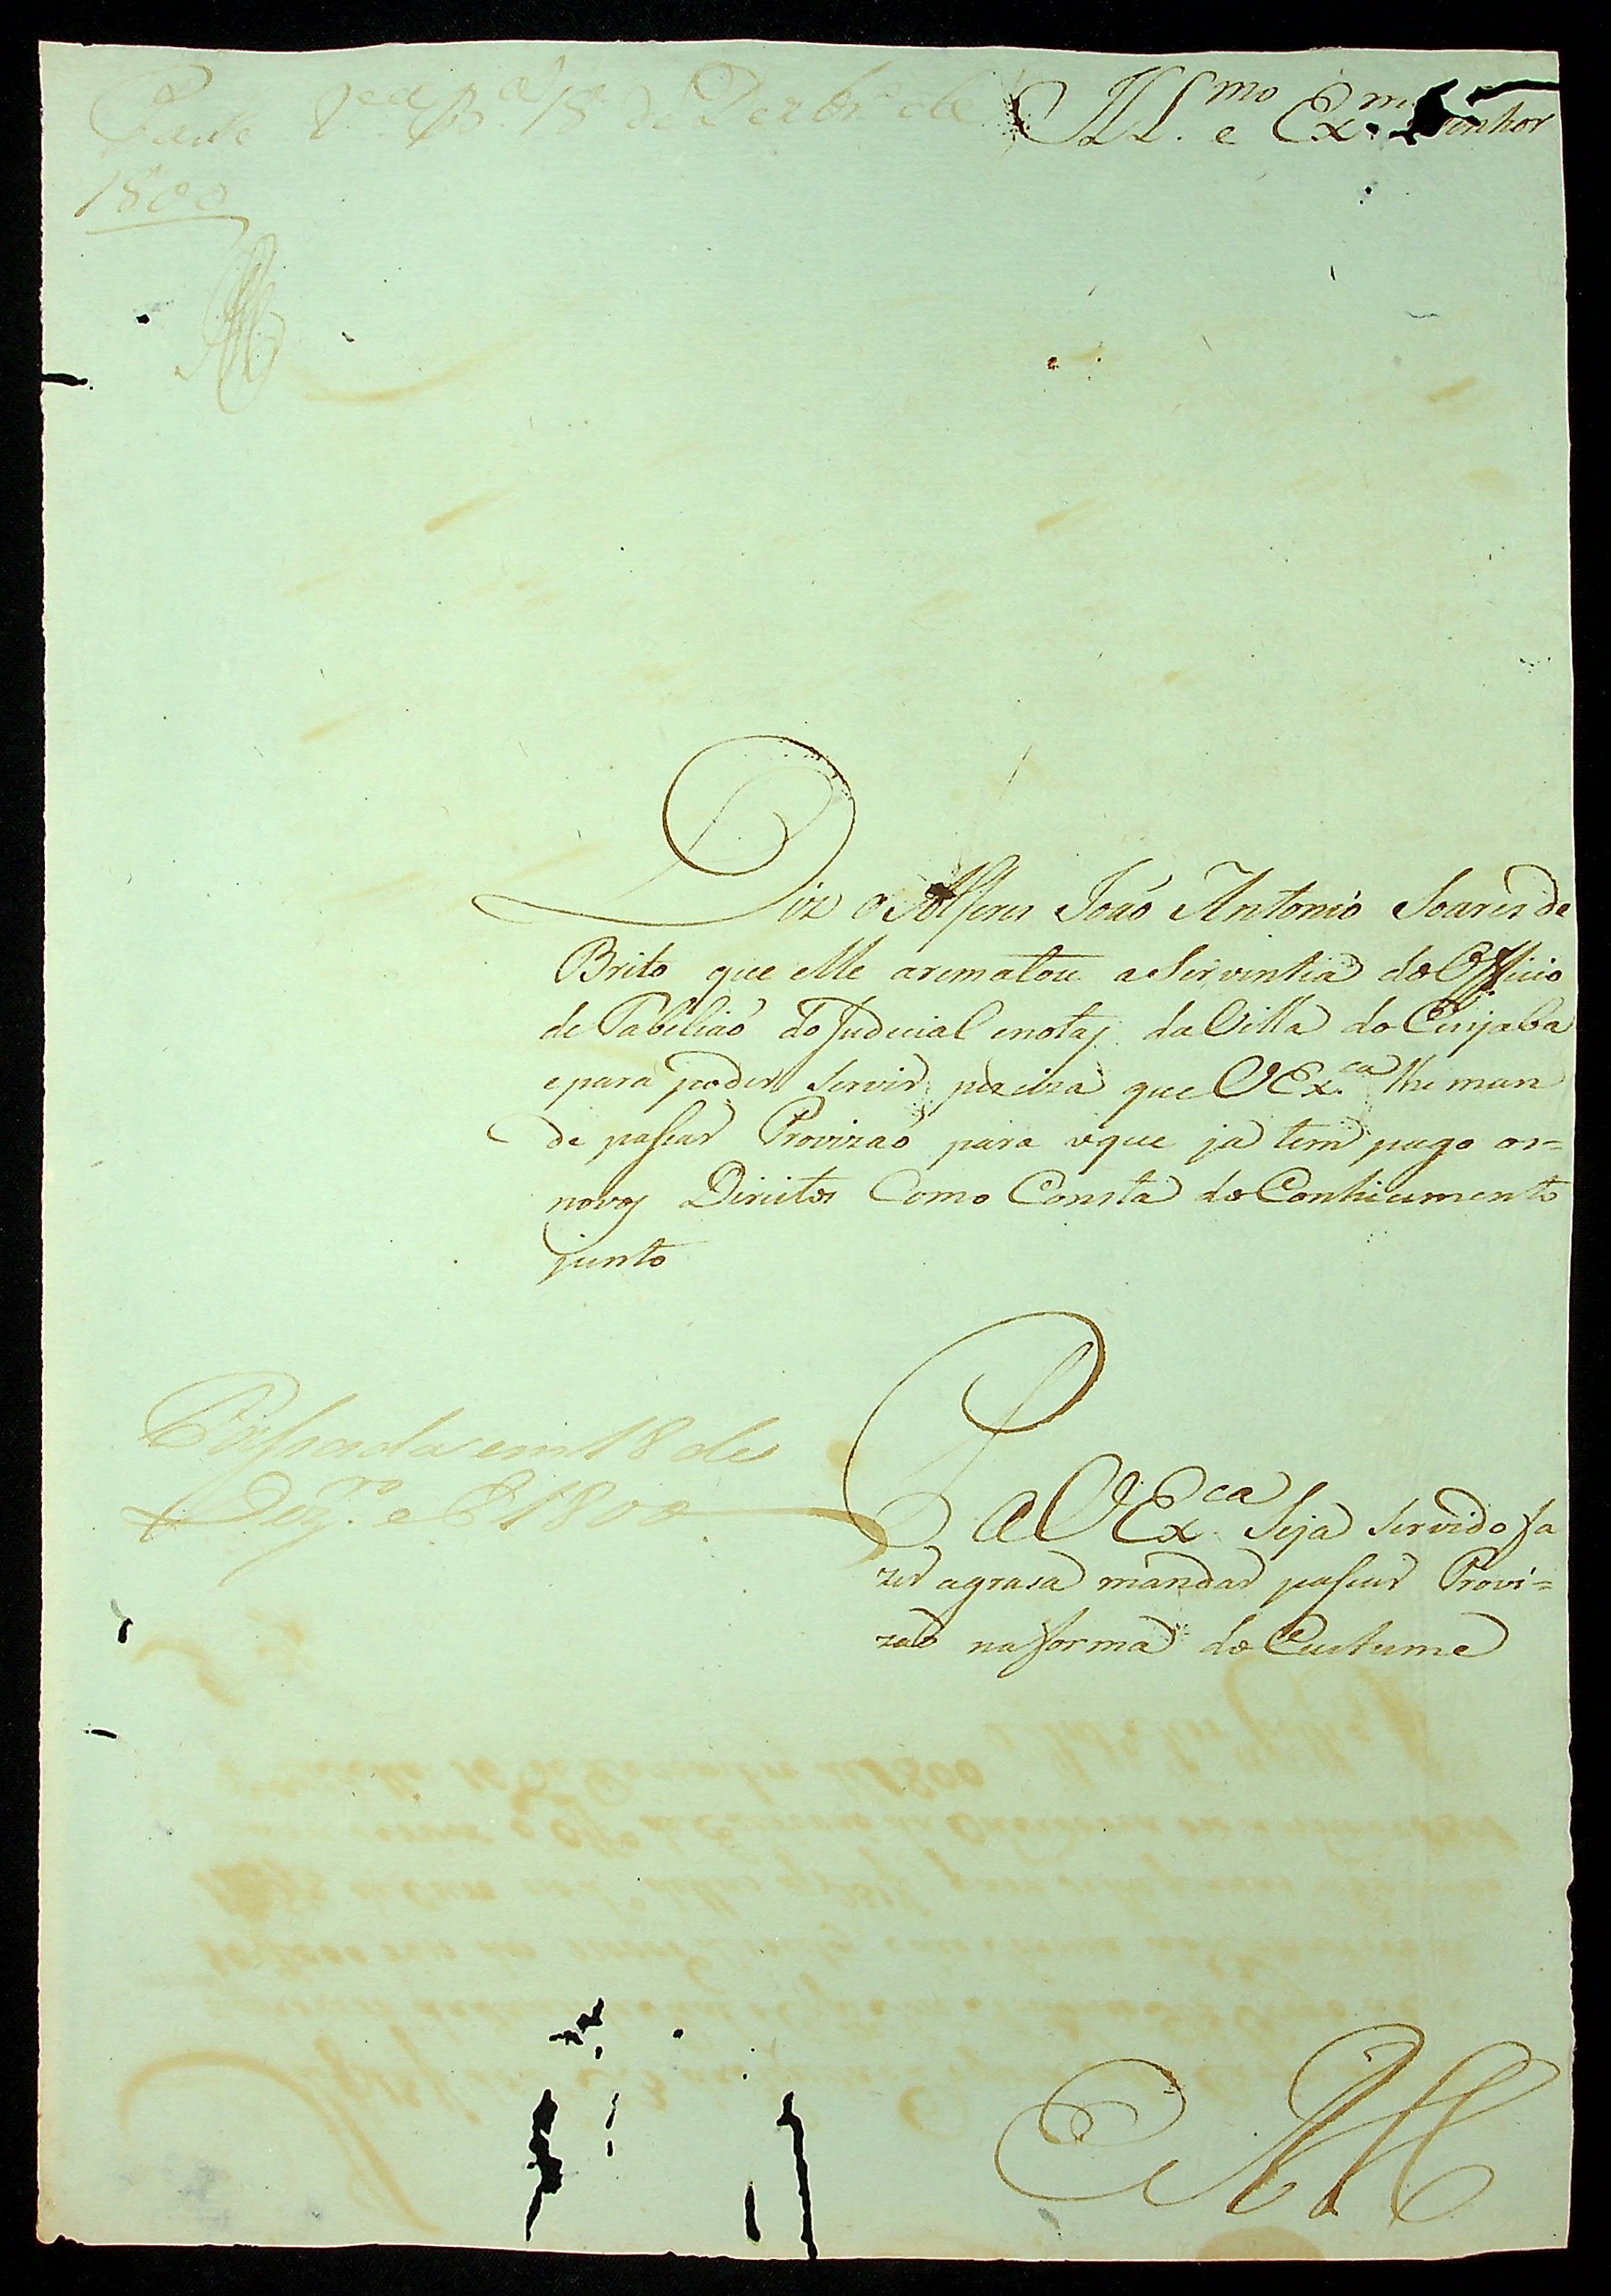 Ill.mo e Ex.mo Senhor
Passe 18 de Dezbr.o de
1800
Diz o Alferes João Antonio Soares de
Brito que elle arematou a Servintia do Officio
de Tabeliaó do Judecial enotas da Villa do
epara poder Servir perciza que VEx.ca lhe man
de passar Provizaó para oque ja tem pago os=
novos Direitos Como Consta do Conhecimento
junto
Passada em 18 de
Dez.ro de 1800
P A VEx.ca Seja Servido fa
zer agrasa mandar passar Provi=
zaó naforma do Custume
ERM